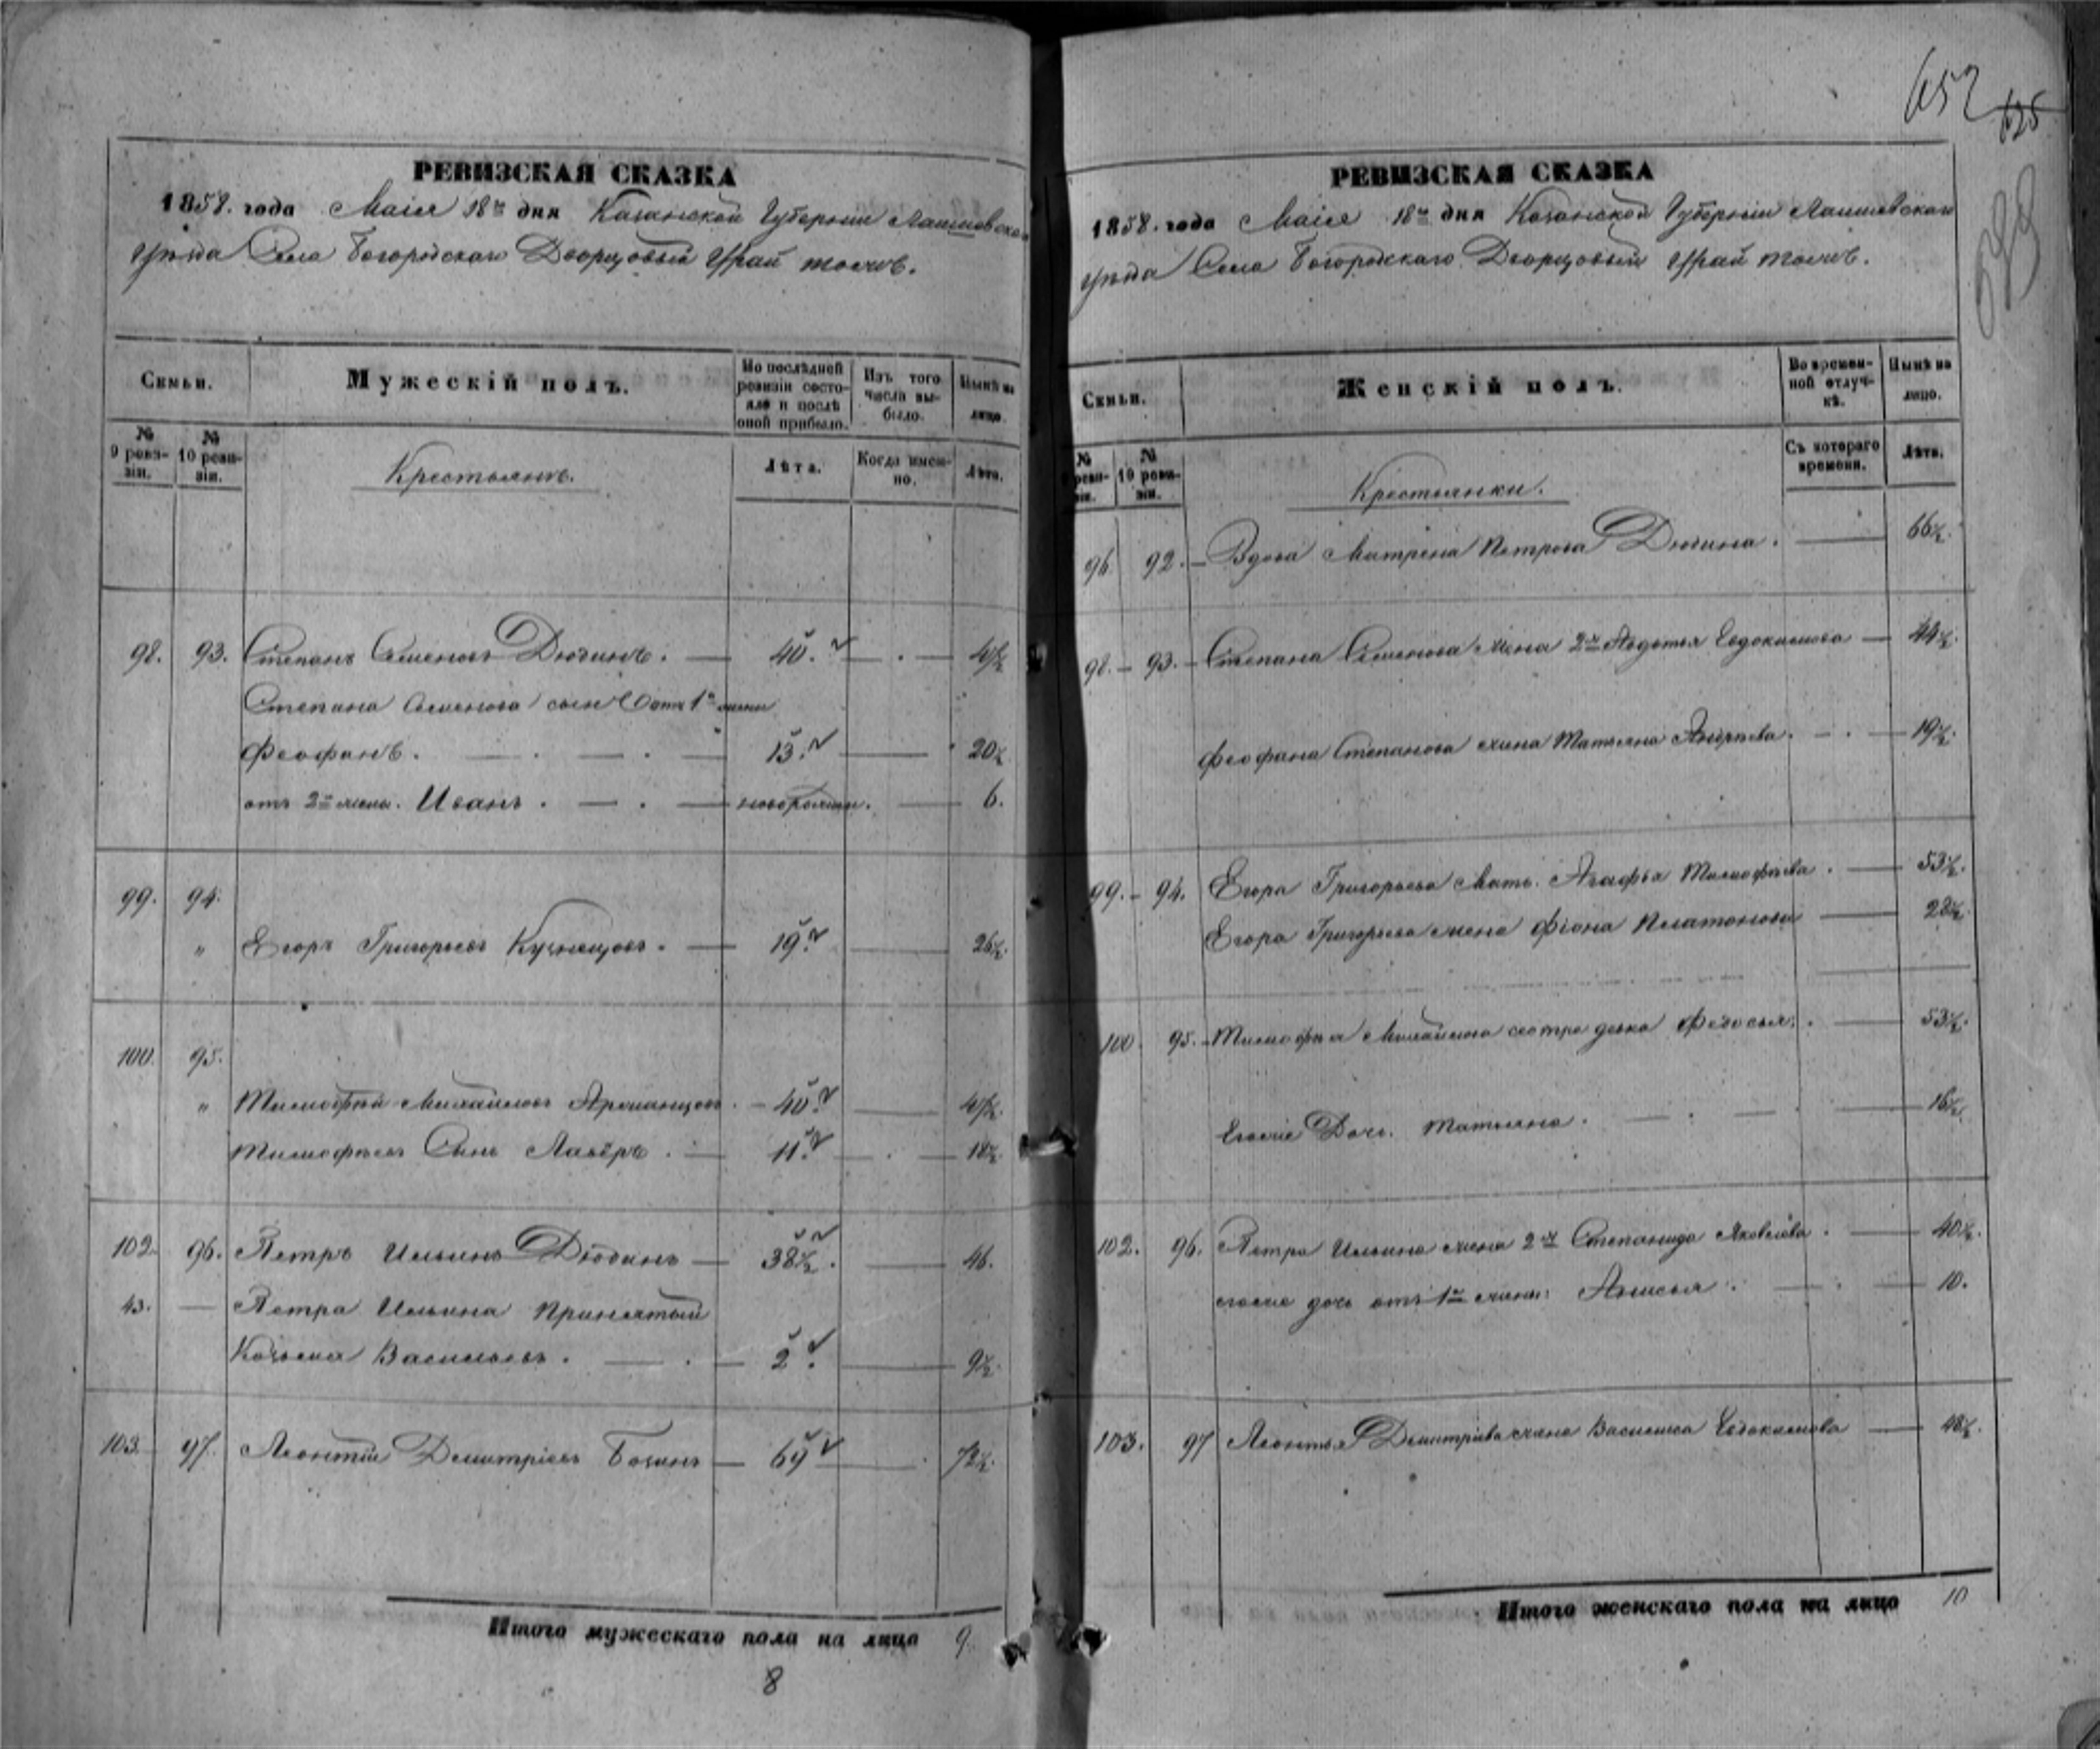 652 635
РЕВИЗСКАЯ СКАЗКА
1858. года Маія 18го дня Казанской Губерніи Лаишевскаго
уѣзда Села Богородскаго Дворцовый Урай тожъ.
Семьи.
Мужескій полъ.
По послѣдней ревизіи состояло и послѣ оной прибыло.
Изъ того числа выбыло.
Нынѣ на лицо.
№ 9 ревизіи.
№ 10 ревизіи.
Крестьянъ.
Лѣта.
Когда именно.
Лѣта.
98. 93. Степанъ Семеновъ Дюдинъ. 40. 47½
Степана Семенова сынъ отъ 1й жены
Феофанъ. 13. 20½
отъ 2й жены. Иванъ. новорожден. 6.
99. 94.
" Егоръ Григорьевъ Кузнецовъ. 19. 26½.
100. 95.
" Тимофей Михайловъ 40. 47½.
Тимофеевъ Сынъ Лавёръ. 11. 18½.
102. 96. Петръ Ильинъ Дюдинъ 38½. 46.
43. — Петра Ильина Принятый
Козьма Васильевъ. 2. 9½.
103. 97. Леонтій Демитріевъ 69 72½.
Итого мужескаго пола на лицо 9.
8
РЕВИЗСКАЯ СКАЗКА
1858. года Маія 18го дня Казанской Губерніи Лаишевскаго
уѣзда Села Богородскаго Дворцовый Урай тожъ.
Семьи.
Женскій полъ.
Во временной отлучкѣ.
Нынѣ на лицо.
№ 9 ревизіи.
№ 10 ревизіи.
Крестьянки.
Съ котораго времени.
Лѣта.
96. 92. Вдова Матрена Петрова Дюдина. 66½.
98. 93. Степана Семенова жена 2я Авдотья Евдокимова 44½.
Феофана Степанова жена Татьяна Андреева. 19½.
99. 94. Егора Григорьева Мать. Агафья Тимофѣева. 53½.
Егора Григорьева жена Фіона Платонова 28½.
100 95. Тимофѣя Михайлова сестра девка Федосья. 53½.
Егоже Дочь. Татьяна. 16½.
102. 96. Петра Ильина жена 2я Степанида Яковлева. 40½.
егоже дочь отъ 1й жены: Анисья. 10.
103. 97 Леонтья Демитріева жена Василиса Евдокимова 48½.
Итого женскаго пола на лицо 10